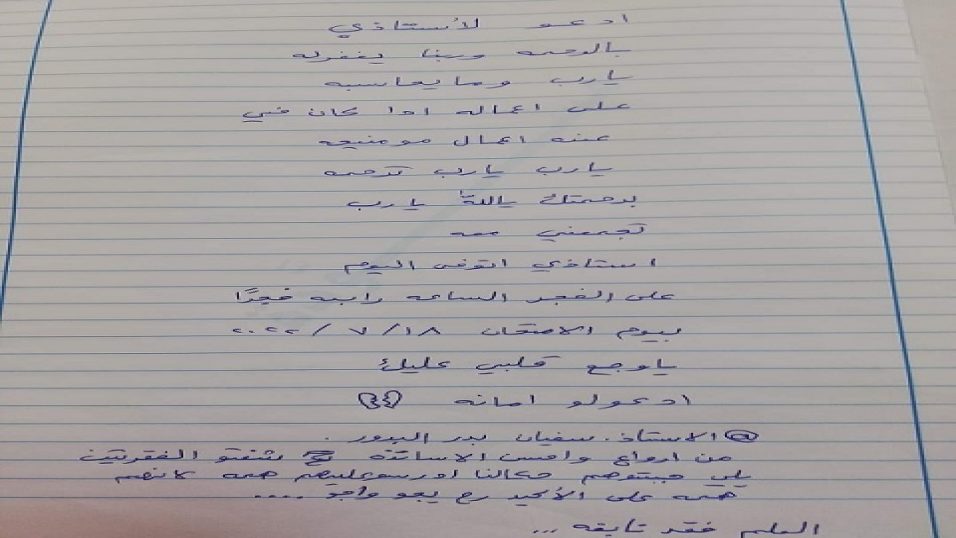 ادعو لأستاذي
بالرحمه وربنا يغفرله
يارب وما يحاسبه
على اعماله اذا كان في
عنه اعمال مو منيحه
يارب يارب ترحمه
برحمتك ياالله يارب
تجمعني معه
استاذي اتوفى اليوم
على الفجر الساعه رابعه فجرًا
بيوم الامتحان ٢٠٢٢/٧/١٨
ياوجع قلبي عليك
ادعولو امانه
@ الاستاذ. سفيان بدر البدور.
من اروع الاساتذة شفتو الفقرتين
يلي حكالنا ادرسو عليهم همه لانهم
همه على الأكيد رح يجو واجو ....
العلم فقد تابعه ...